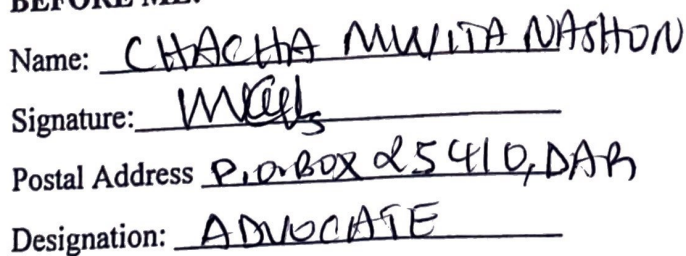 BEFORE ME:
Name: CHACHA MWITA NASHON
Signature:
Postal Address P.O.BOX 25410, DAR
Designation: ADVOCATE